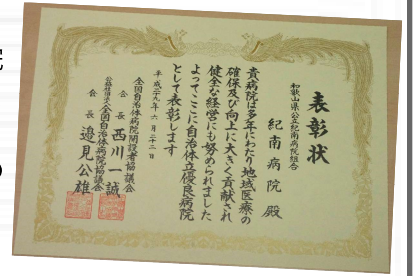 表彰状
和歌山県公立紀南病院組合
紀南病院殿
貴病院は多年にわたり地域医療の
確保及び向上に大きく貢献され
健全な経営にも努められました
よってここに自治体立優良病院
として表彰します
平成二十九年六月二十二日
全国自治体病院開設者協議会
会長 西川一誠
公益社団法人全国自治体病院協議会
会長 邉見公雄